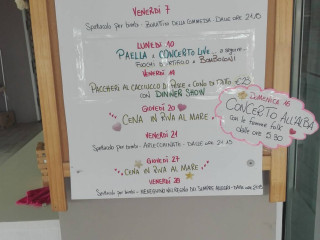 VENERDÌ 7
Spettacolo per bimbi - BURATTINI DELLA COMMEDIA - DALLE ore 21.15
LUNEDÌ 10
PAELLA e CONCERTO LIVE... a seguire
FUOCHI D'ARTIFICIO e BOMBOLONI
VENERDÌ 14
PACCHERI AL CACIUCCO DI PESCE e CONO DI FRITTO €23
CON DINNER SHOW
GIOVEDÌ 20
CENA IN RIVA AL MARE
VENERDÌ 21
Spettacolo per bimbi - - DALLE ore 21.15
GIOVEDÌ 27
CENA IN RIVA AL MARE
VENERDÌ 28
Spettacolo per bimbi - BENVENUTI NEL REGNO DEI SEMPRE ALLEGRI - DALLE ore 21.15
DOMENICA 16
CONCERTO ALL'ALBA
con le famose folk
dalle ore 5.30